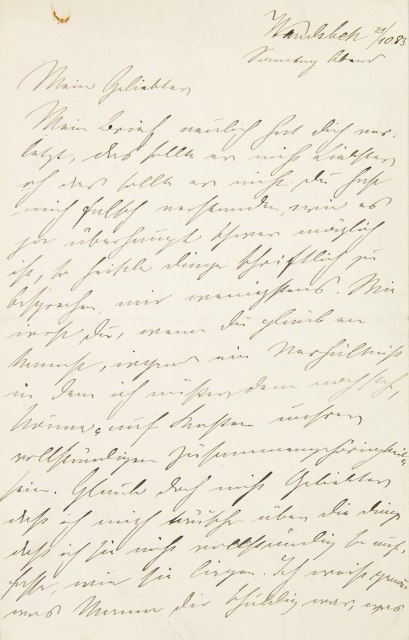 Wandsbek 21/10.83
Sonntag Abend
Mein Geliebter
Mein Brief neulich hat dich ver-
letzt, das sollte er nicht
ach das sollte er nicht, du hast
mich falsch verstanden, wie es
ja überhaupt schwer möglich
ist, so heikle Dinge schriftlich zu
besprechen, mir wenigstens. Wie
irrst du, wenn du glauben
kannst, irgend ein Verhältniß
in dem ich
könne, auf Kosten unsrer
vollständigen Zusammengehörigkeit
sein. Glaube doch nicht Geliebter
daß ich mich täusche über die Dinge
daß ich sie nicht vollständig so auf-
fasse, wie sie liegen. Ich weiß genau
was Mama dir schuldig war, was